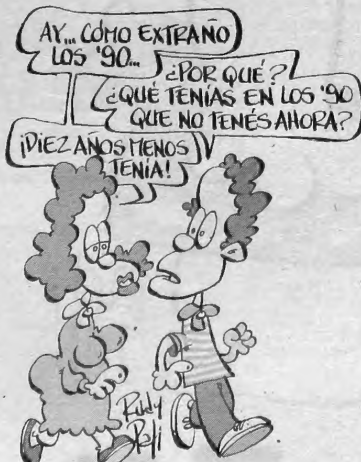 AY... CÓMO EXTRAÑO
LOS '90...
¿POR QUÉ?
¿QUÉ TENÍAS EN LOS '90
QUE NO TENÉS AHORA?
¡DIEZ AÑOS MENOS
TENÍA!
Rudy
Paz